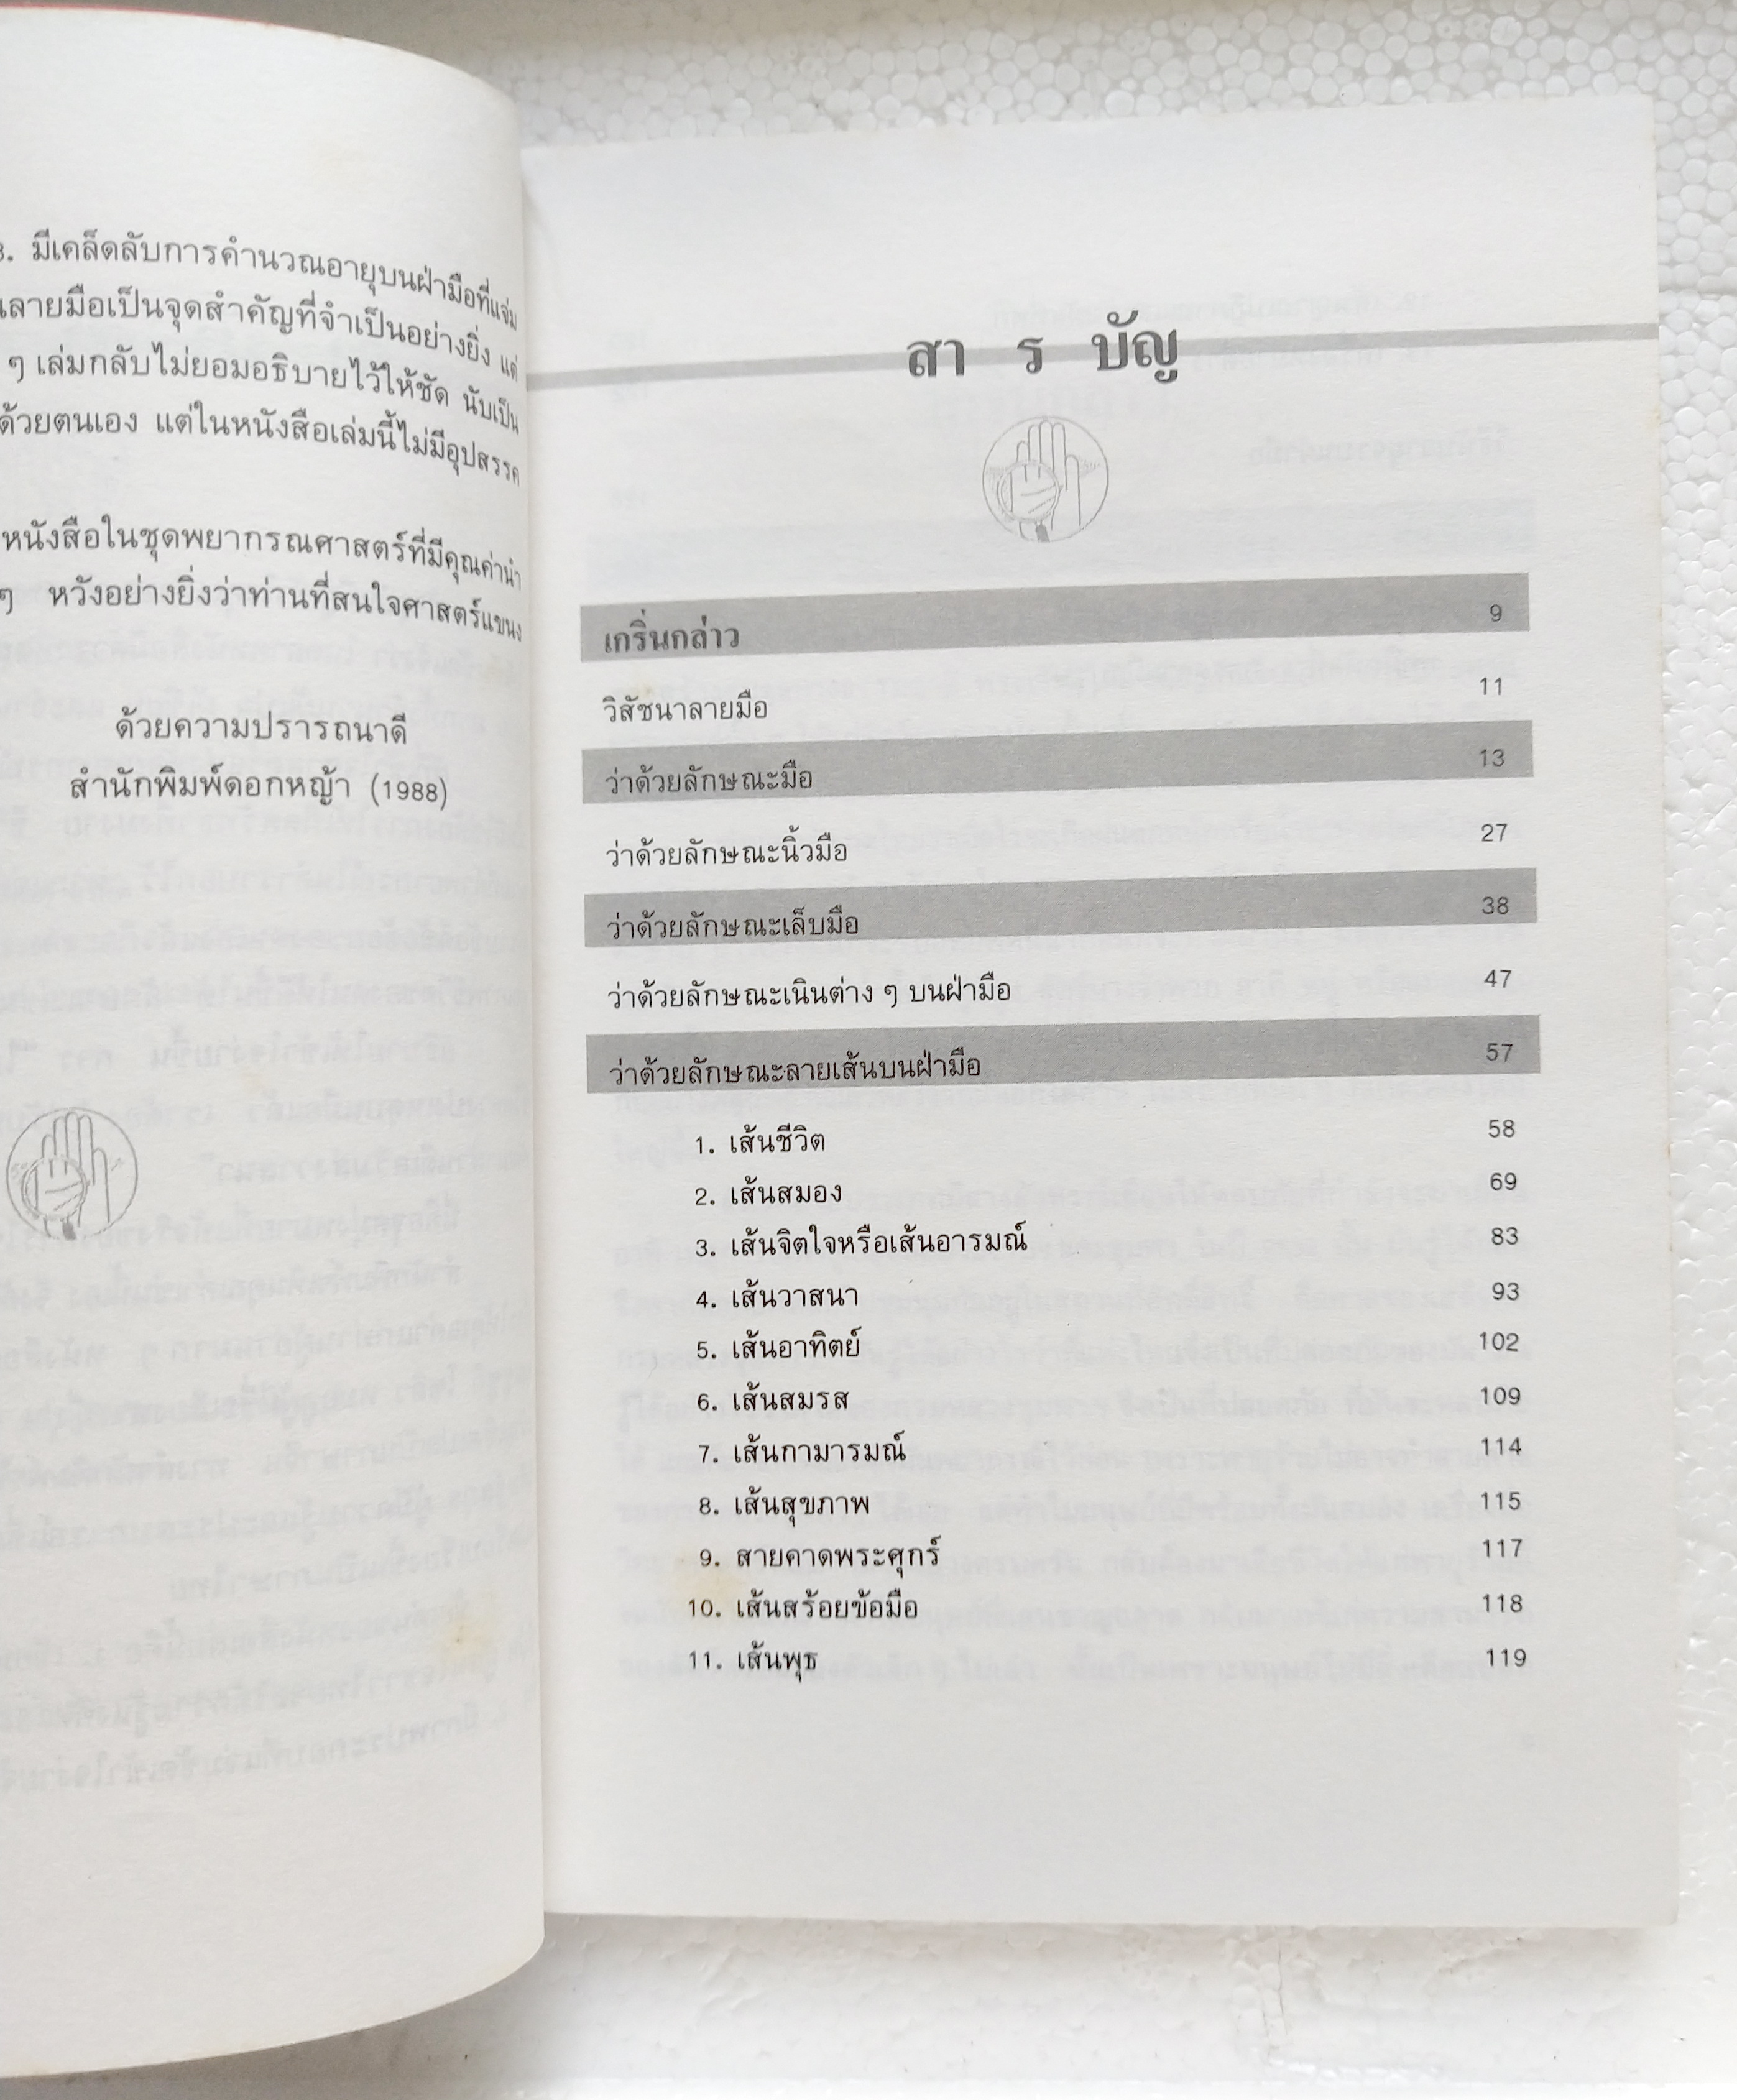 3. มีเคล็ดลับการคำนวณอายุบนฝ่ามือที่แจ่ม
ลายมือเป็นจุดสำคัญที่จำเป็นอย่างยิ่ง แต่
ๆ เล่มกลับไม่ยอมอธิบายไว้ให้ชัด นับเป็น
ด้วยตนเอง แต่ในหนังสือเล่มนี้ไม่มีอุปสรรค
หนังสือในชุดพยากรณศาสตร์ที่มีคุณค่านำ
ๆ หวังอย่างยิ่งว่าท่านที่สนใจศาสตร์แขนง
ด้วยความปรารถนาดี
สำนักพิมพ์ดอกหญ้า (1988)
สา ร บัญ
เกริ่นกล่าว 9
วิสัชนาลายมือ 11
ว่าด้วยลักษณะมือ 13
ว่าด้วยลักษณะนิ้วมือ 27
ว่าด้วยลักษณะเล็บมือ 38
ว่าด้วยลักษณะเนินต่าง ๆ บนฝ่ามือ 47
ว่าด้วยลักษณะลายเส้นบนฝ่ามือ 57
1. เส้นชีวิต 58
2. เส้นสมอง 69
3. เส้นจิตใจหรือเส้นอารมณ์ 83
4. เส้นวาสนา 93
5. เส้นอาทิตย์ 102
6. เส้นสมรส 109
7. เส้นกามารมณ์ 114
8. เส้นสุขภาพ 115
9. สายคาดพระศุกร์ 117
10. เส้นสร้อยข้อมือ 118
11. เส้นพุธ 119